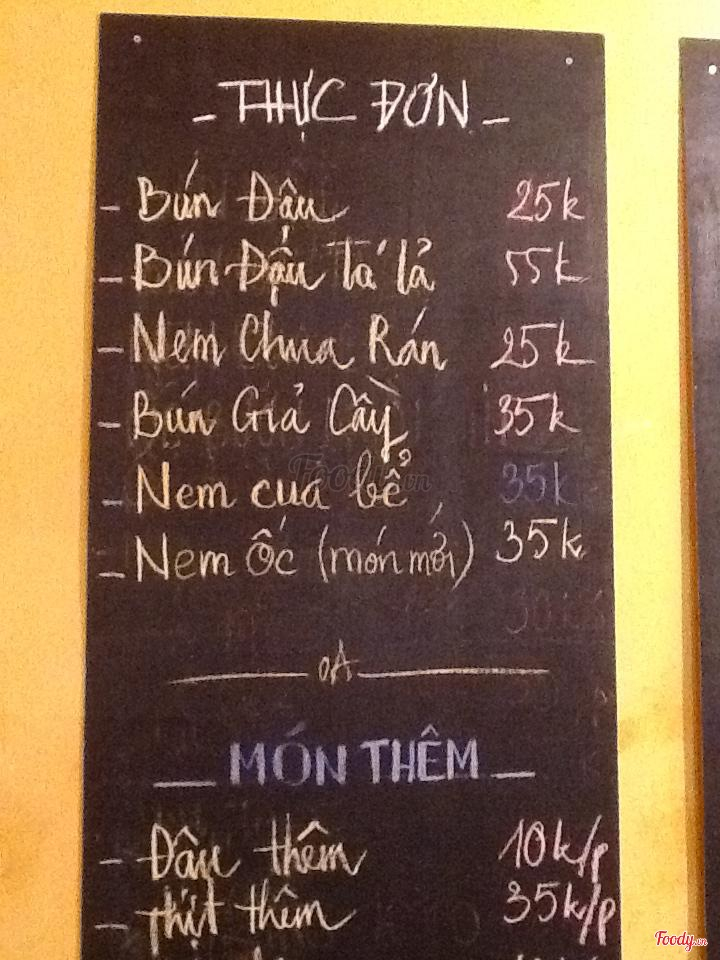 - THỰC ĐƠN -
- Bún Đậu 25k
- Bún Đậu Tá lả 55k
- Nem Chua Rán 25k
- Bún Giả Cầy 35k
- Nem cua bể 35k
- Nem Ốc (món mới) 35k
Foody.vn
MÓN THÊM
- Đậu thêm 10k/p
- Thịt thêm 35k/p
Foody.vn